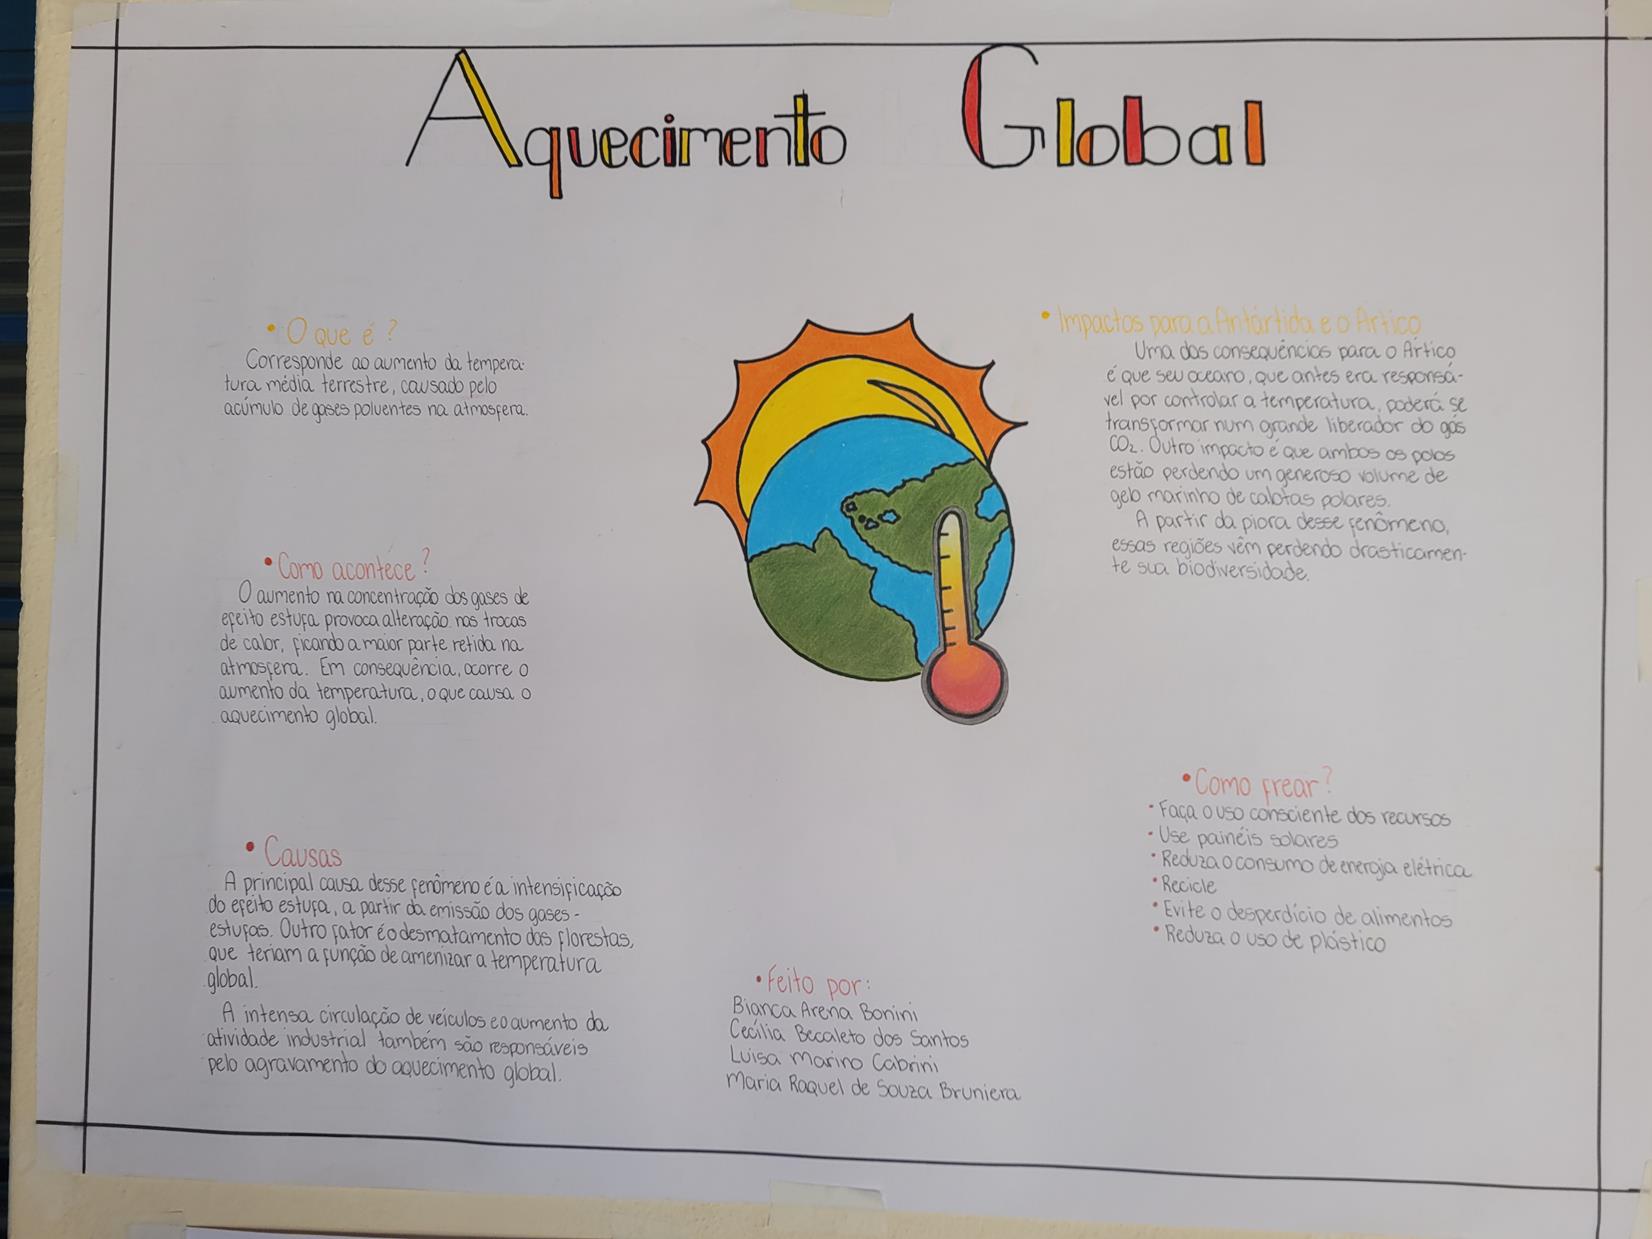 Aquecimento Global
• O que é?
Corresponde ao aumento da tempera-
tura média terrestre, causado pelo
acúmulo de gases poluentes na atmosfera.
• Como acontece?
O aumento na concentração dos gases de
efeito estufa provoca alteração nas trocas
de calor, ficando a maior parte retida na
atmosfera. Em consequência, ocorre o
aumento da temperatura, o que causa o
aquecimento global.
• Causas
A principal causa desse fenômeno é a intensificação
do efeito estufa, a partir da emissão dos gases-
estufas. Outro fator é o desmatamento das florestas,
que teriam a função de amenizar a temperatura
global.
A intensa circulação de veículos e o aumento da
atividade industrial também são responsáveis
pelo agravamento do aquecimento global.
• Feito por:
Bianca Arena Bonini
Cecília Becaleto dos Santos
Luisa Marino Cabrini
Maria Raquel de Souza Bruniera
• Impactos para a Antártida e o Ártico
Uma das consequências para o Ártico
é que seu oceano, que antes era responsá-
vel por controlar a temperatura, poderá se
transformar num grande liberador do gás
CO₂. Outro impacto é que ambos os polos
estão perdendo um generoso volume de
gelo marinho de calotas polares.
A partir da piora desse fenômeno,
essas regiões vêm perdendo drasticamen-
te sua biodiversidade.
• Como frear?
• Faça o uso consciente dos recursos
• Use painéis solares
• Reduza o consumo de energia elétrica
• Recicle
• Evite o desperdício de alimentos
• Reduza o uso de plástico